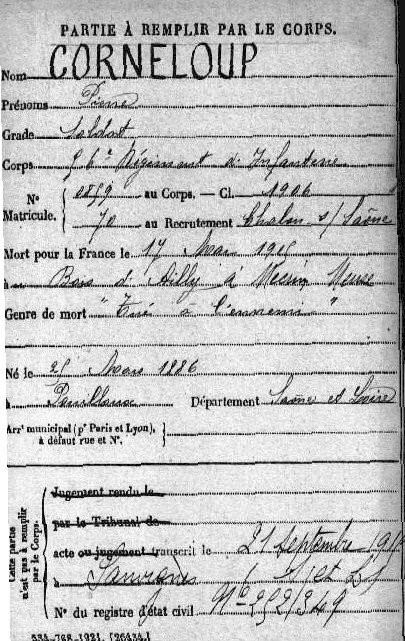 PARTIE À REMPLIR PAR LE CORPS.
Nom CORNELOUP
Prénoms Pierre
Grade Soldat
Corps Régiment d'Infanterie
No Matricule. au Corps. — Cl. 1906
70 au Recrutement Chalon s/ Saône
Mort pour la France le 17 Mai 1915
à Bois d'Ailly à Meuse
Genre de mort "Tué à l'ennemi"
Né le 25 Mars 1886
à Département Saône et Loire
Arrt municipal (pr Paris et Lyon), à défaut rue et No.
Cette partie n'est pas à remplir par le Corps.
Jugement rendu le
par le Tribunal de
acte ou jugement transcrit le 21 Septembre
à Sanvignes (S et L)
No du registre d'état civil No
534-708-1921. [26434.]